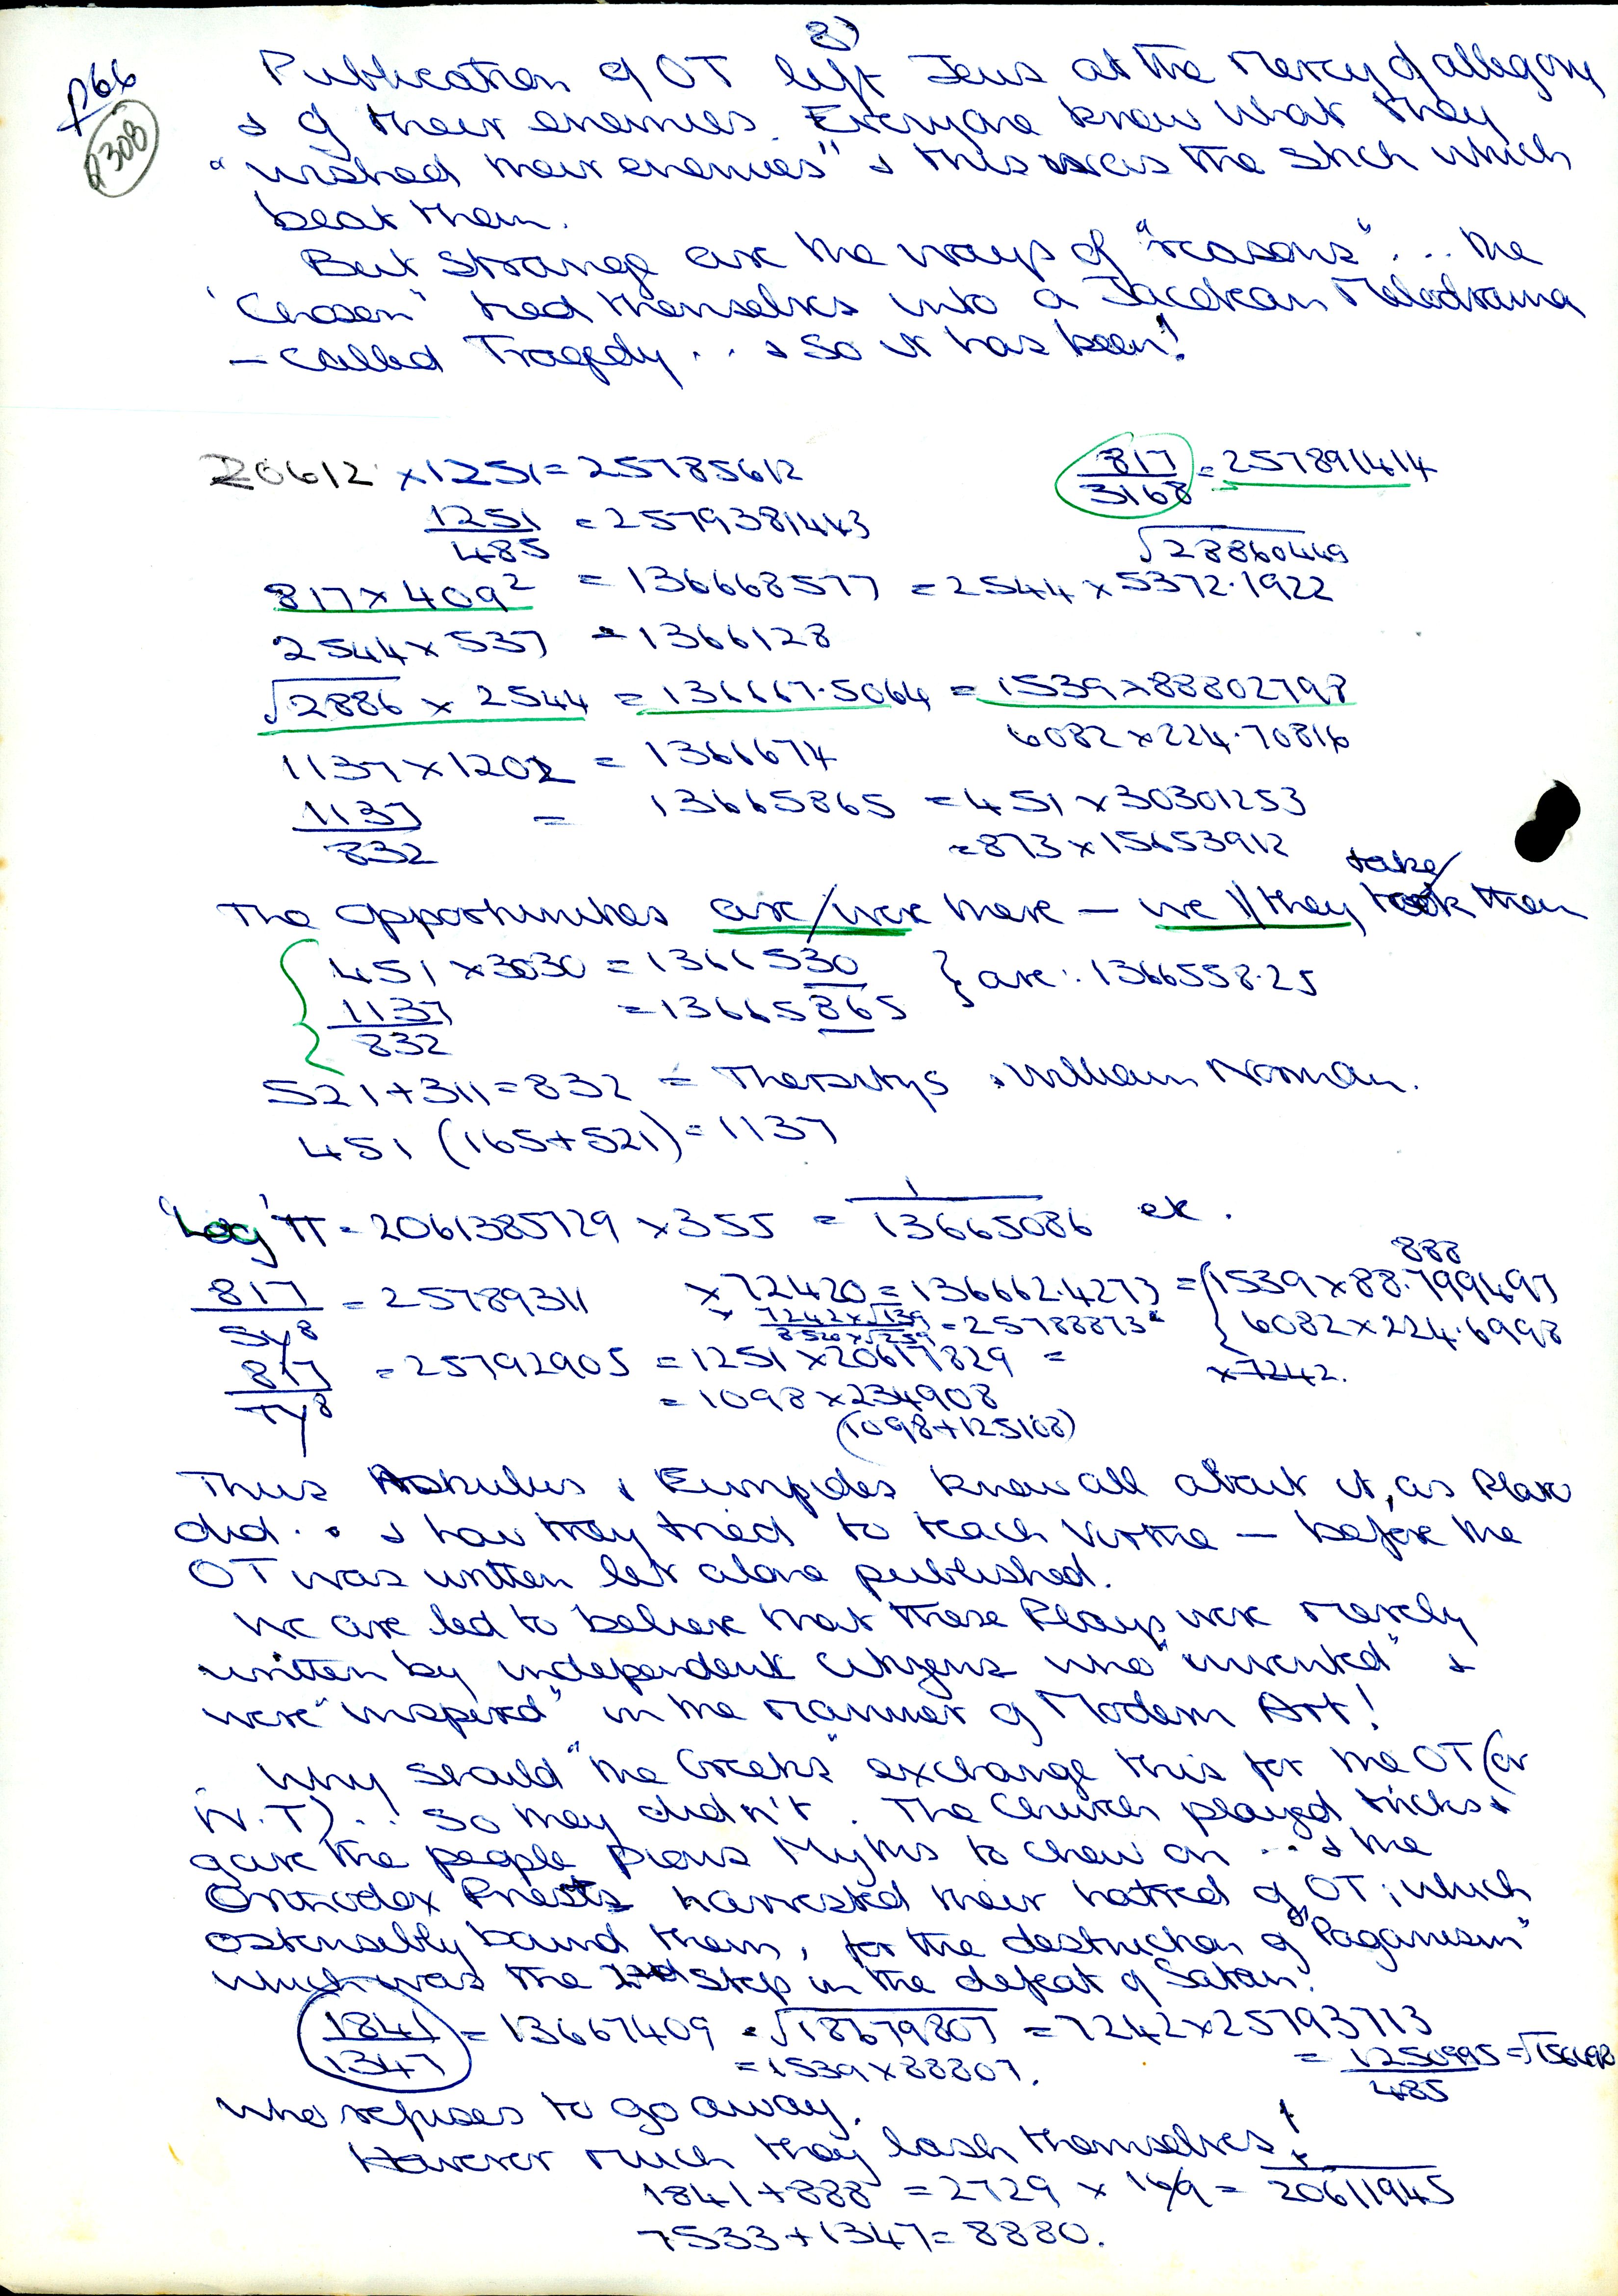 8)
p66
p308
Publication of OT left Jews at the mercy of allegory
& of their enemies. Everyone knew what they
"wished their enemies" & this was the stick which
beat them.
But strange are the ways of "reasons"... the
'Chosen" tied themselves into a Jacobean Melodrama
— called Tragedy... & so it has been!
20612 × 1251 = 25785612
817/3168 = 257891414
1251/485 = 2579381443
√28860449
817 × 409² = 136668577 = 2544 × 5372.1922
2544 × 537 = 1366128
√2886 × 2544 = 136667.5064 = 1539 × 88802798
6082 × 224.70816
1137 × 1202 = 1366674
1137/832 = 13665865 = 451 × 30301253
= 873 × 15653912
take/
The opportunities are/were there — we // they took them
451 × 3030 = 1366530 } are: 1366558.25
1137/832 = 13665865
521 + 311 = 832 = Thersitys & William Norman.
451 (165 + 521) = 1137
'Log' π = 2061385729 × 355 = 1/13665086 etc.
888
817/Sy⁸ = 25789311 × 72420 = 136662.4273 = { 1539 × 88.799497
× 7242 × √139/8520 × √259 = 25788873 { 6082 × 224.6998
817/TY⁸ = 25792905 = 1251 × 20617829 = × 7242.
= 1098 × 234908
(1098 + 125108)
Thus Askulus & Euripides knew all about it, as Plato
did... & how they tried to teach Virtue — before the
OT was written let alone published.
We are led to believe that these Plays were merely
written by independent citizens who "invented" &
were "inspired" in the manner of Modern Art!
Why should "the Greeks" exchange this for the OT (or
N.T)..! So they didn't. The Church played tricks &
gave the people pious Myths to chew on... & the
Orthodox Priests harnessed their hatred of OT; which
ostensibly bound them, for the destruction of "Paganism"
which was the 2nd step in the defeat of Satan!
1841/1347 = 13667409 = √18679807 = 7242 × 25793713
= 1539 × 88807. = 1250995/485
who refuses to go away.
However much they lash themselves!
1841 + 888 = 2729 × 16/9 = 1/20611945
7533 + 1347 = 8880.